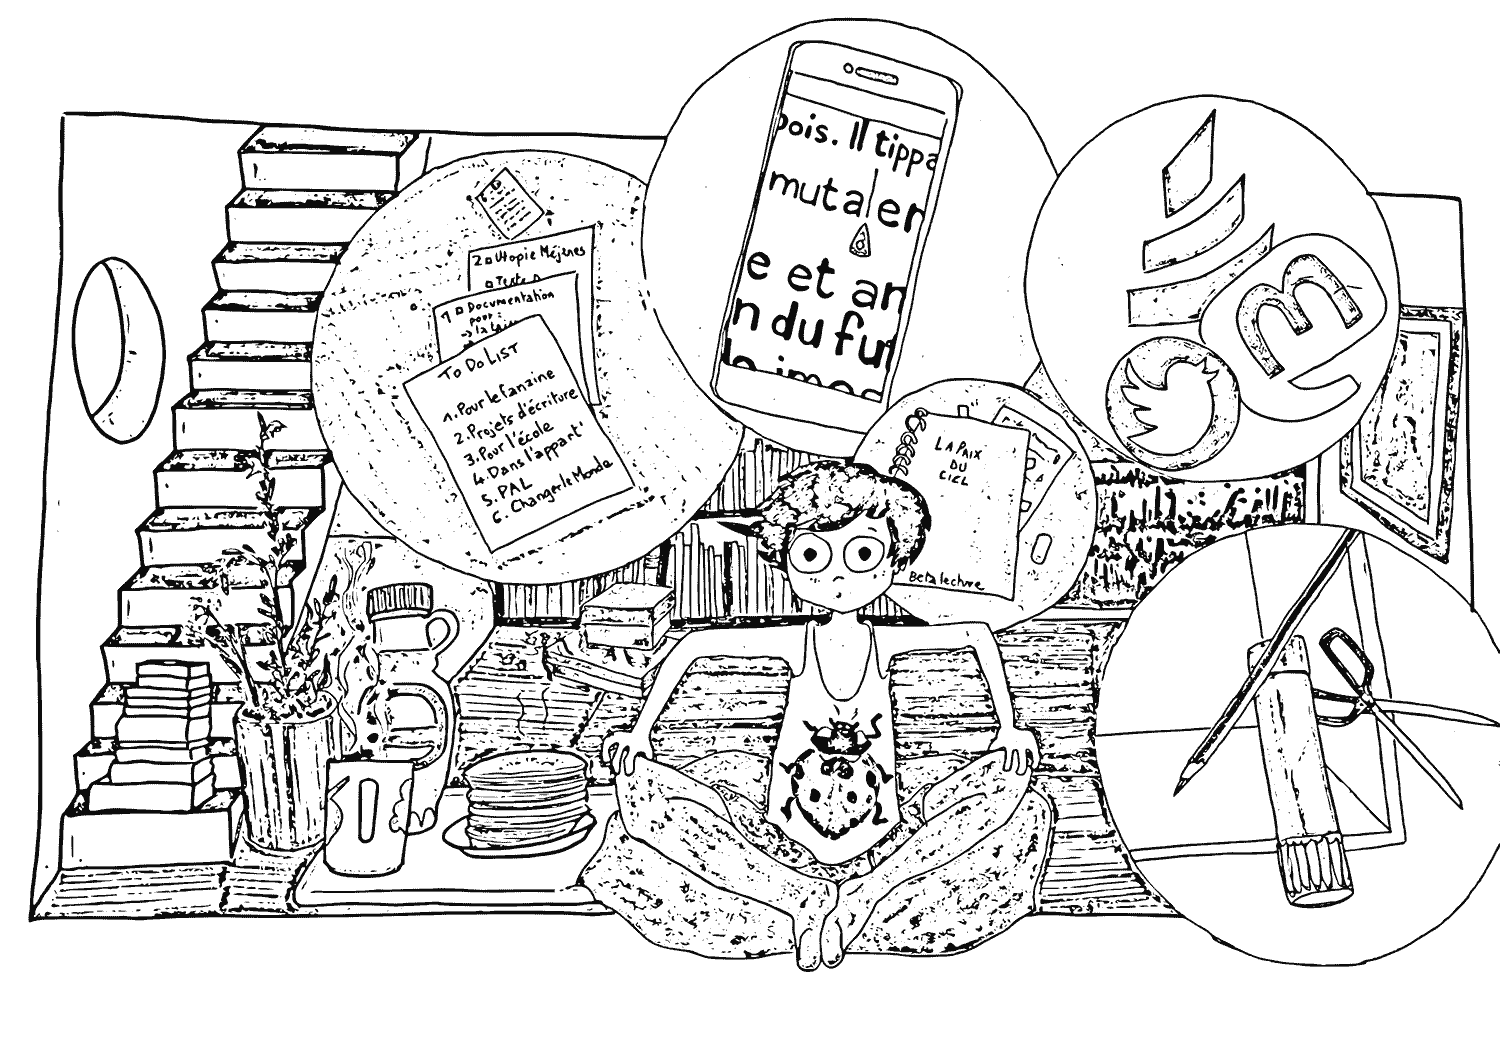 2 Utopie Méjènes
Texte
1 Documentation
pour :
→ la
To Do List
1. Pour le fanzine
2. Projets d'écriture
3. Pour l'école
4. Dans l'appart'
5. PAL
6. Changer le Monde
pois. Il tippa
mutaler
e et an
n du fut
LA PAIX
DU
CIEL
Beta lecture
m